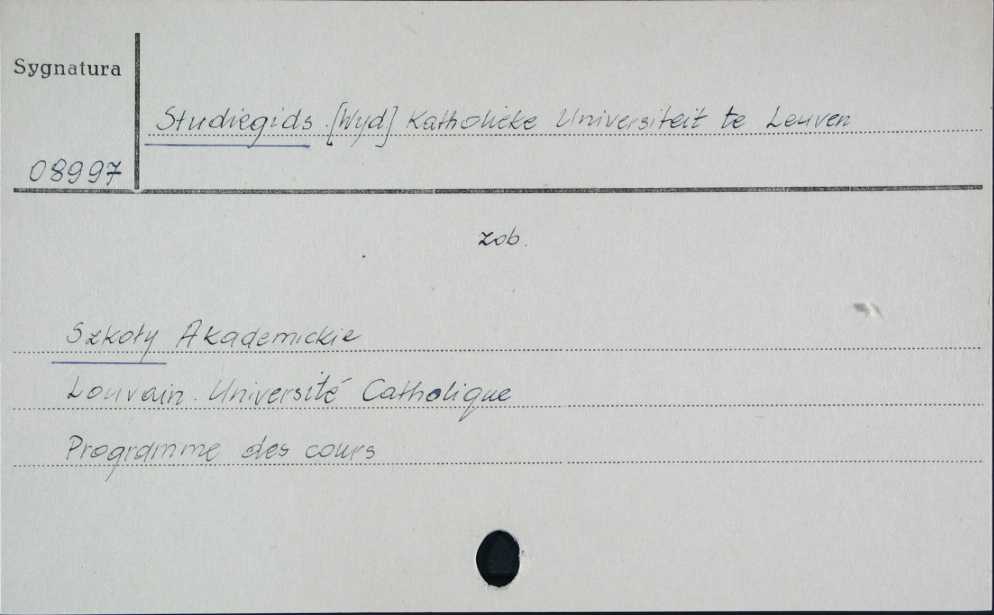 Sygnatura
Studiegids. [Wyd] Katholieke Universiteit te Leuven
08997
zob.
Szkoły Akademickie
Louvain. Université Catholique
Programme des cours